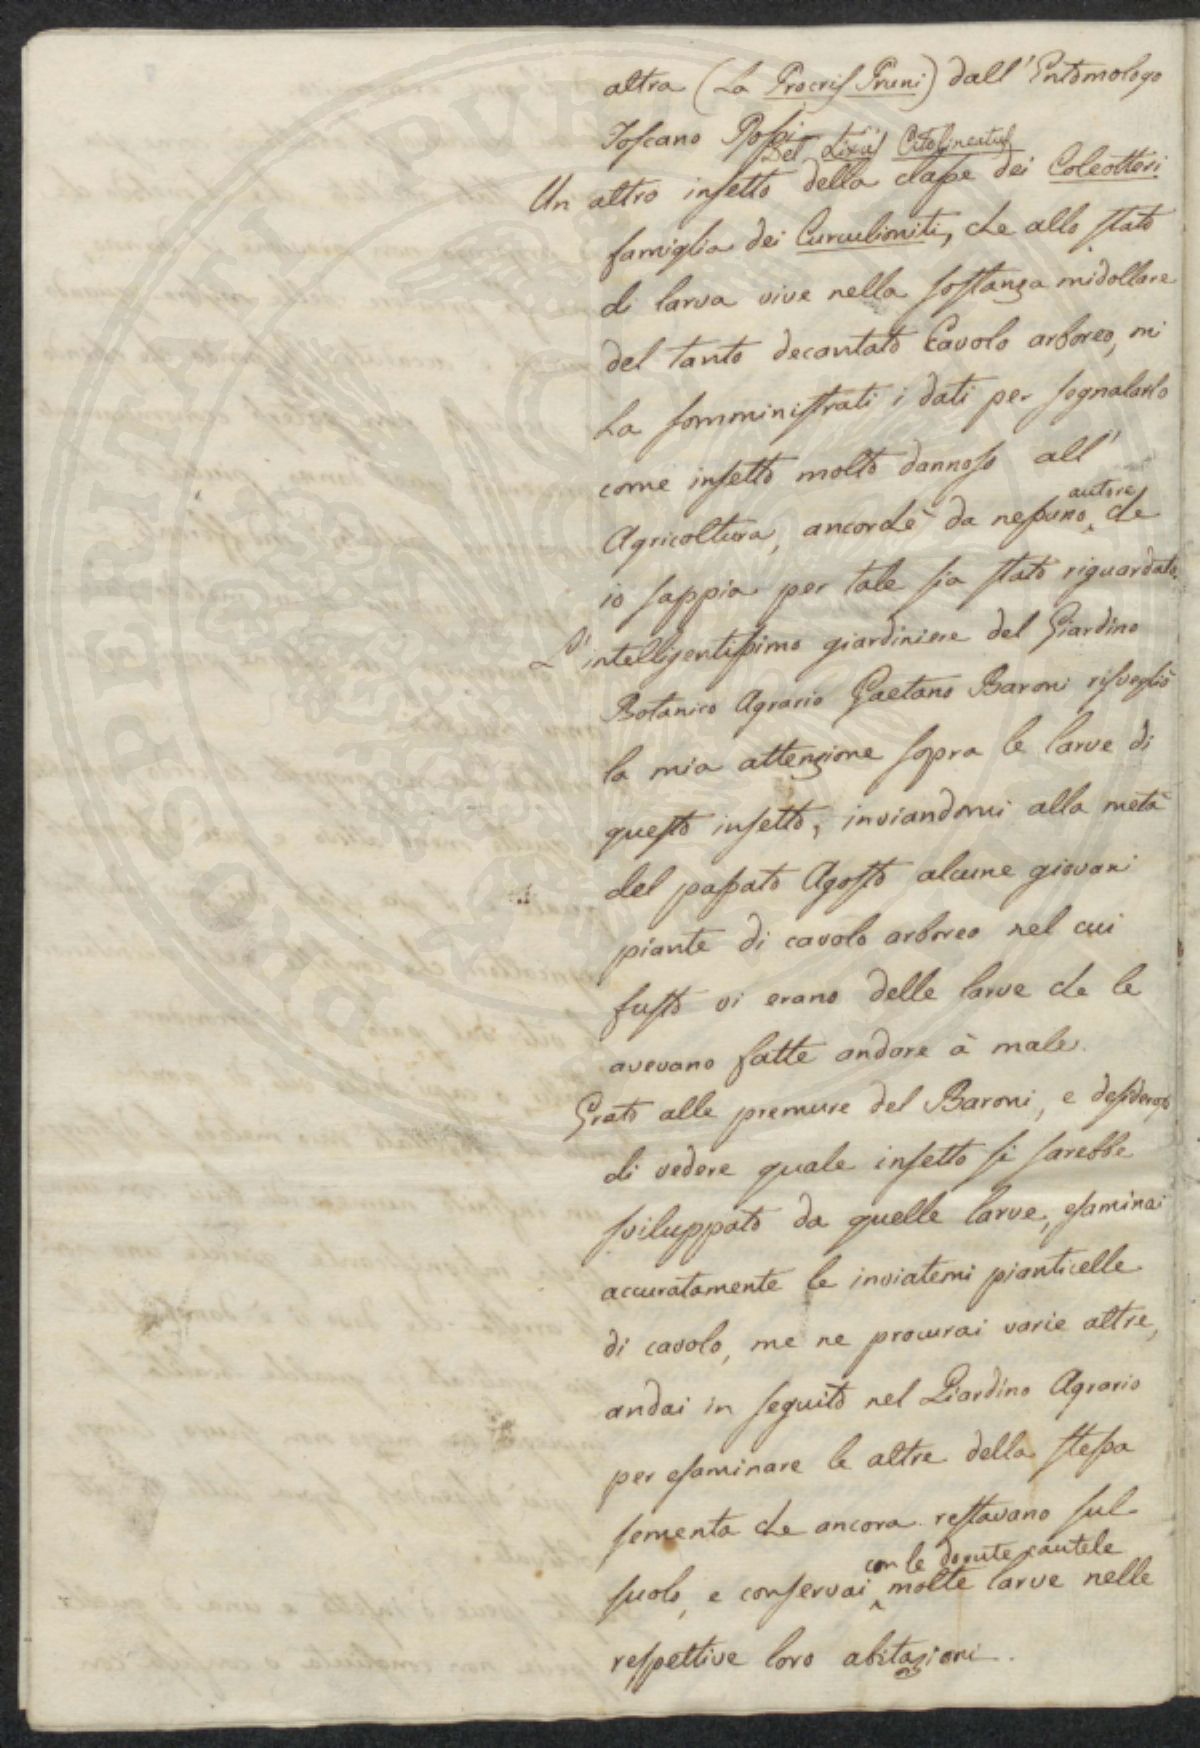 altra (La Procris Pruni) dall'Entomologo
Toscano Rossi
Del Lixus Octolineatus
Un altro insetto della classe dei Coleotteri
famiglia dei Curculioniti, che allo stato
di larva vive nella sostanza midollare
del tanto decantato Cavolo arboreo, mi
ha somministrati i dati per segnalarlo
come insetto molto dannoso all'
Agricoltura, ancorchè da nessuno autore che
io sappia per tale sia stato riguardato.
L'intelligentissimo giardiniere del Giardino
Botanico Agrario Gaetano Baroni risvegliò
la mia attenzione sopra le larve di
questo insetto, inviandomi alla metà
del passato Agosto alcune giovani
piante di cavolo arboreo nel cui
fusto vi erano delle larve che le
avevano fatte andare à male.
Grato alle premure del Baroni, e desideroso
di vedere quale insetto si sarebbe
sviluppato da quelle larve, esaminai
accuratamente le inviatemi pianticelle
di cavolo, me ne procurai varie altre,
andai in seguito nel Giardino Agrario
per esaminare le altre della stessa
sementa che ancora restavano sul
suolo, e conservai con le dovute cautele molte larve nelle
respettive loro abitazioni.